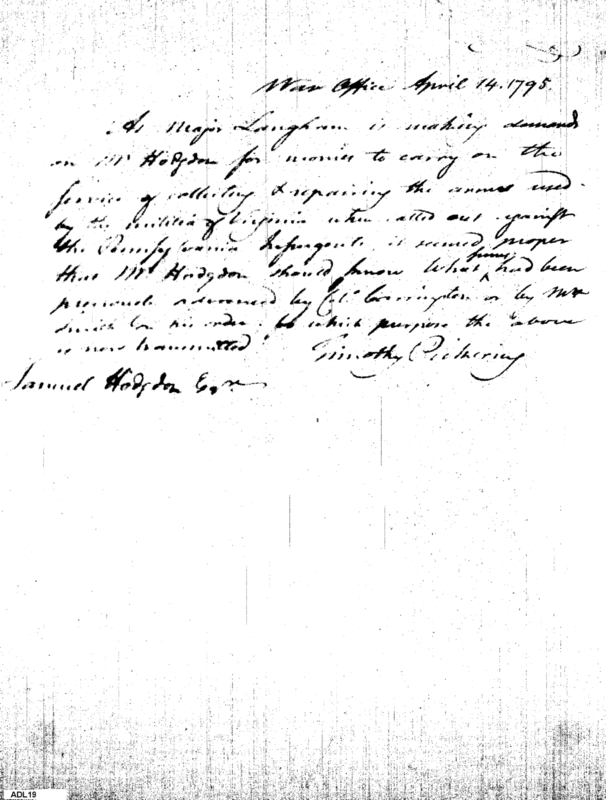 War Office April 14. 1795.
As Major Langham is making demands
on Mr Hodgdon for monies to carry on the
service of collecting & repairing the arms used
by the militia of Virginia when called out against
the Pennsylvania Insurgents, it seemed proper
that Mr Hodgdon should know what sums had been
previously advanced by Colo. Carrington or by Mr
Smith on his order: to which purpose the above
is now transmitted.
Timothy Pickering
Samuel Hodgdon Esqr
ADL19